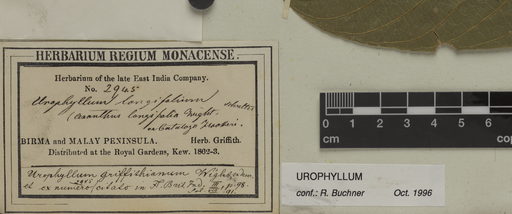 HERBARIUM REGIUM MONACENSE.
Herbarium of the late East India Company.
No. 2945
Urophyllum longifolium
(Axanthus longifolia Wight.
ex Catalogo Hookeri.
BIRMA and MALAY PENINSULA. Herb. Griffith.
Distributed at the Royal Gardens, Kew. 1862-3.
Urophyllum griffithianum
et ex numero citato in Fl. Brit. Ind. III p. 98.
0
1
cm
copy
UROPHYLLUM
conf.: R. Buchner Oct. 1996